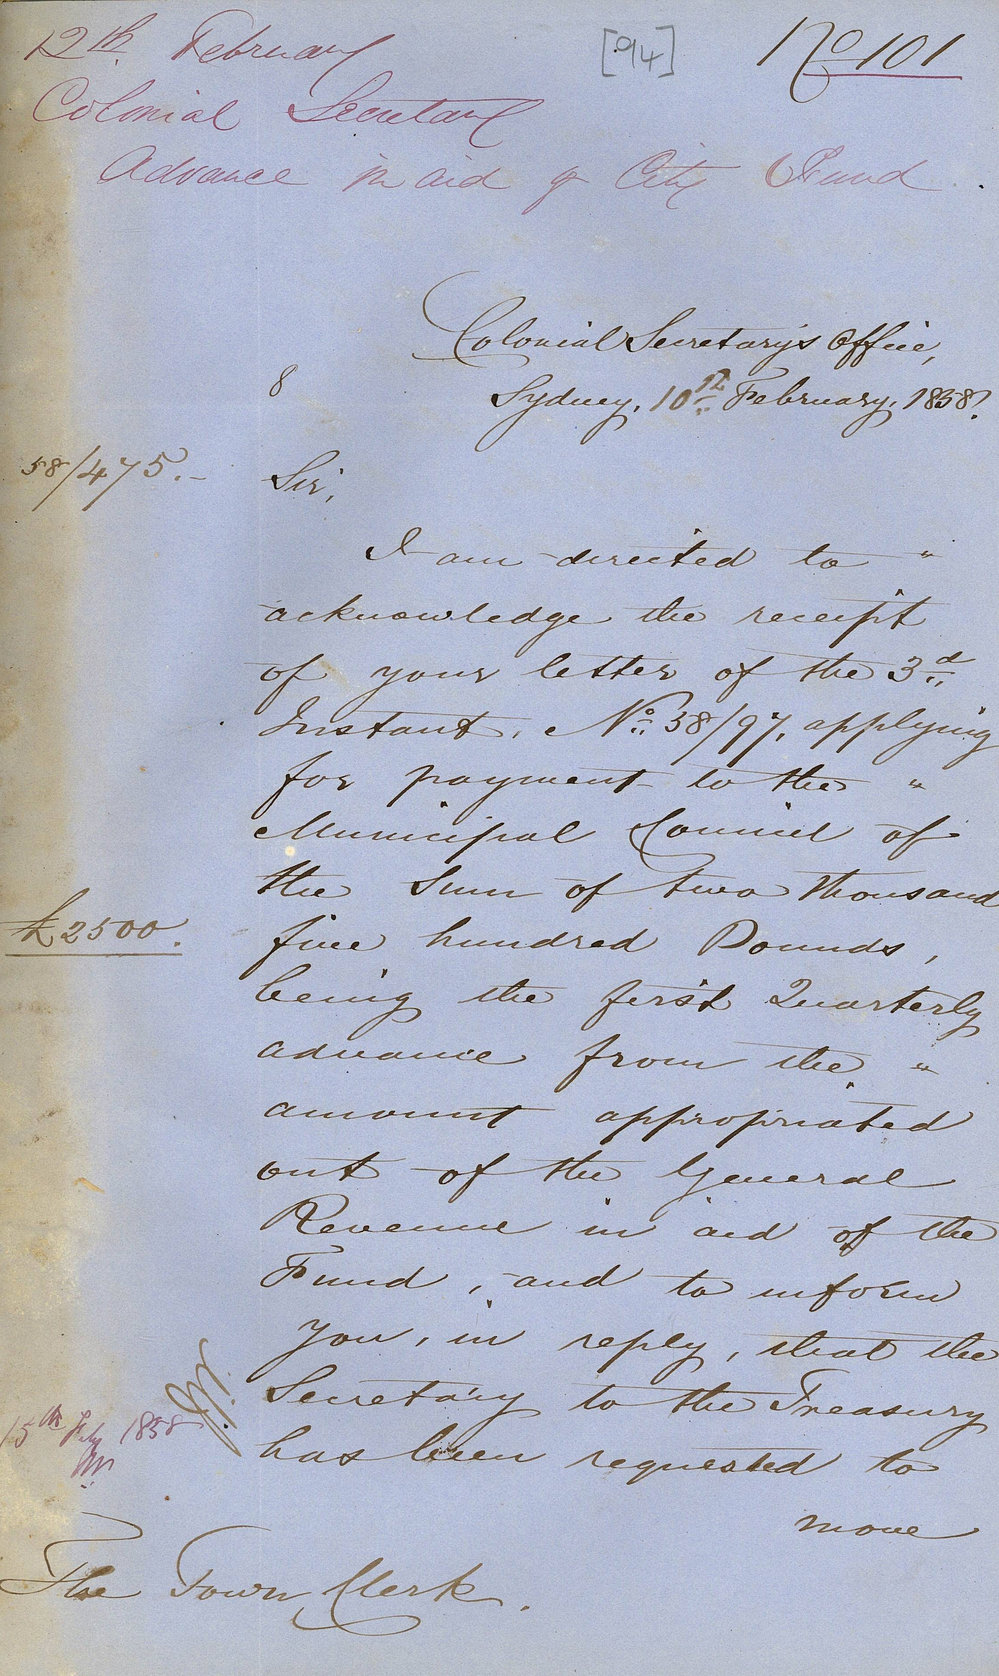 12th February
[94]
No 101
Colonial Secretary
Advance in aid of City Fund
Colonial Secretary's Office,
8
Sydney, 10th 12 February, 1858.
58/475.-
Sir,
I am directed to "
acknowledge the receipt
of your letter of the 3d
Instant, No 58/97, applying
for payment to the "
Municipal Council of
the Sum of two thousand
£2500.
five hundred Pounds,
being the first Quarterly
advance from the "
amount appropriated
out of the General
Revenue in aid of the
Fund, and to inform
you, in reply, that the
Secretary to the Treasury
15th Feby 1858
has been requested to
move
The Town Clerk.